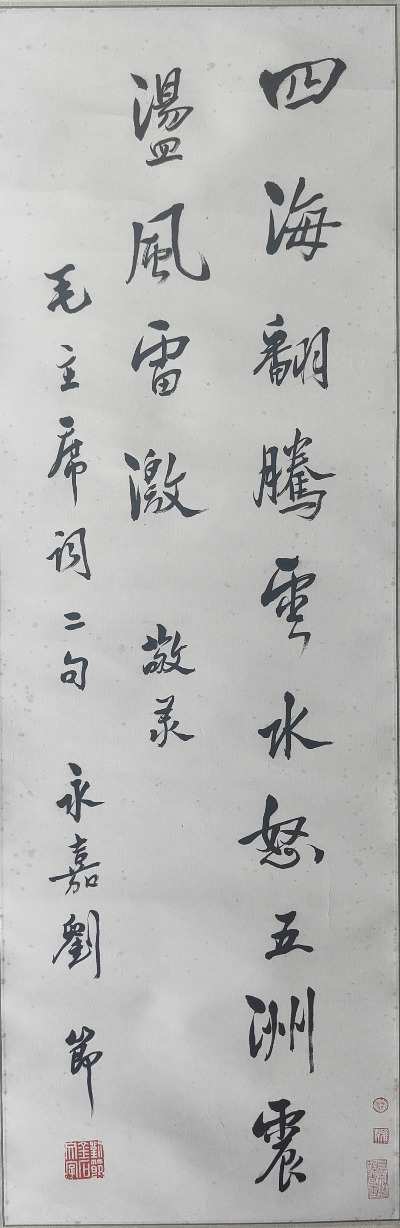 四海翻騰雲水怒五洲震
盪風雷激 敬录
毛主席词二句 永嘉劉節